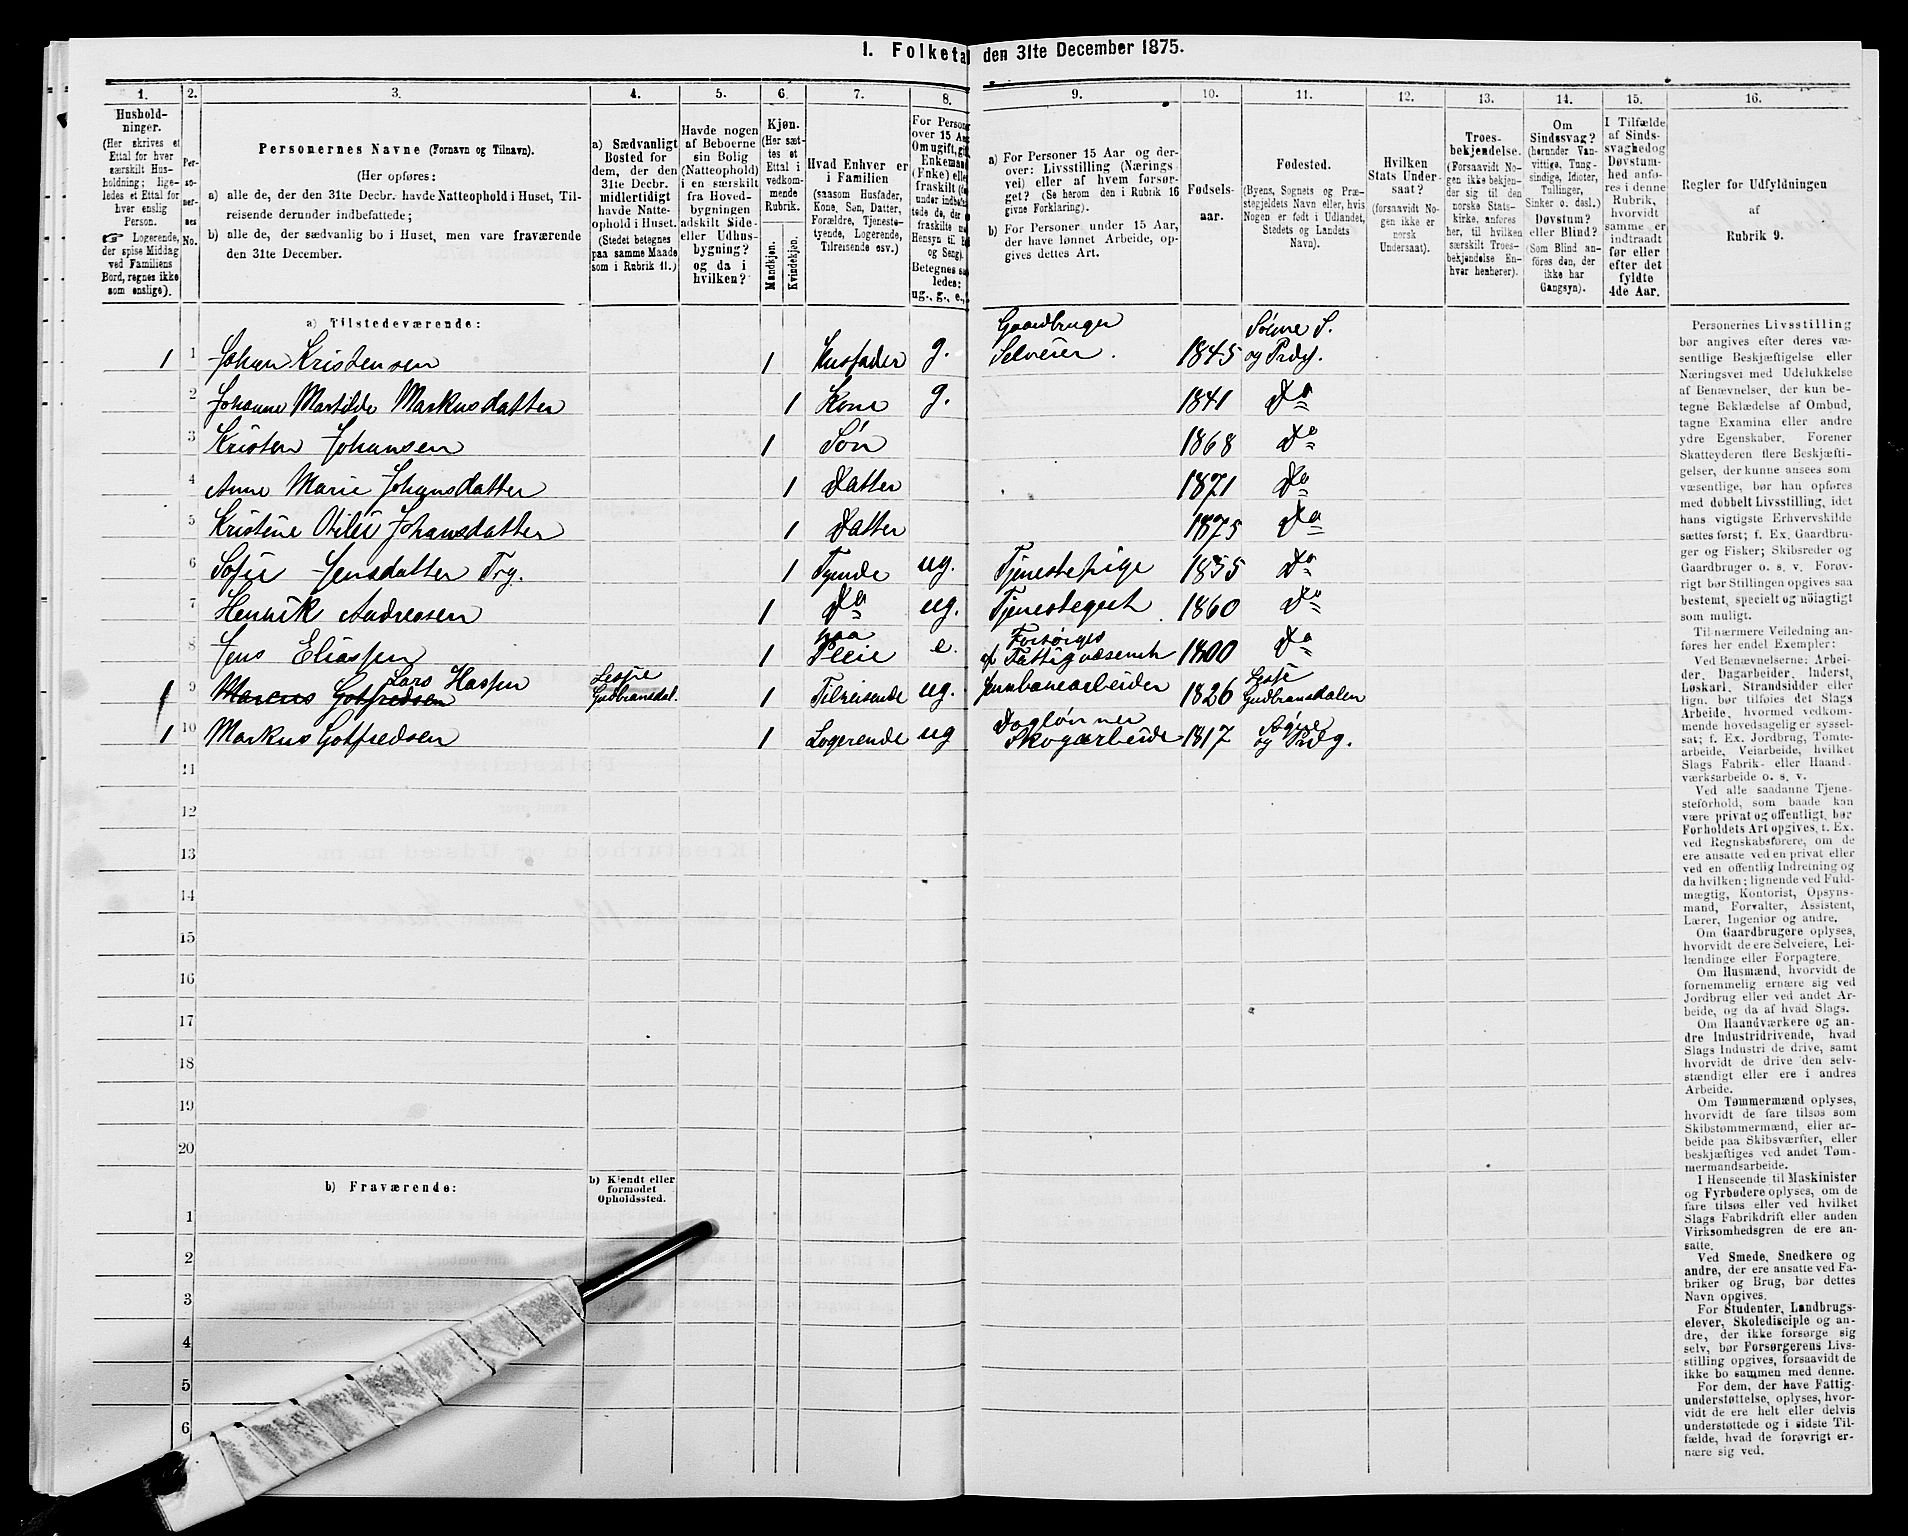 I. Folketal den 31te December 1875.
1.
Hushold-
ninger.
(Her skrives et
Ettal for hver
særskilt Hus-
holdning; lige-
ledes et Ettal for
hver enslig
Person.
☞ Logerende,
der spise Middag
ved Familiens
Bord, regnes ikke
som enslige).
2.
Per-
so-
ner-
nes
No.
3.
Personernes Navne (Fornavn og Tilnavn).
(Her opføres:
a) alle de, der den 31te Decbr. havde Natteophold i Huset, Til-
reisende derunder indbefattede;
b) alle de, der sædvanlig bo i Huset, men vare fraværende
den 31te December.
4.
a) Sædvanligt
Bosted for
dem, der den
31te Decbr.
midlertidigt
havde Natte-
ophold i Huset.
(Stedet betegnes
paa samme Maade
som i Rubrik 11.)
5.
Havde nogen
af Beboerne
sin Bolig
(Natteophold)
i en særskilt
fra Hoved-
bygningen
adskilt Side-
eller Udhus-
bygning?
og da i
hvilken?
6.
Kjøn.
(Her sæt-
tes et
Ettal i
vedkom-
mende
Rubrik.
Mandkjøn.
Kvindekjøn.
7.
Hvad Enhver er
i Familien
(saasom Husfader,
Kone, Søn, Datter,
Forældre, Tjeneste-
tyende, Logerende,
Tilreisende osv.)
8.
For Person
over 15 Aa
Om ugift, gif
Enkemand
(Enke) elle
fraskilt
Betegnes saa
ledes:
ug., g., e.,
9.
a) For Personer 15 Aar og der-
over: Livsstilling (Nærings
vei) eller af hvem forsør-
get? (Se herom den i Rubrik 16
givne Forklaring).
b) For Personer under 15 Aar,
der have lønnet Arbeide, op-
gives dettes Art.
10.
Fødsels-
aar.
11.
Fødested.
(Byens, Sognets og Præ-
stegjeldets Navn eller, hvis
Nogen er født i Udlandet,
Stedets og Landets
Navn).
12.
Hvilken
Stats Under-
saat?
(forsaavidt No-
gen ikke er
norsk
Undersaat).
13.
Troes-
bekjendelse.
(Forsaavidt No-
gen ikke bekjen-
der sig til den
norske Stats-
kirke, anføres
her, til hvilken
særskilt Troes-
bekjendelse En-
hver henhører).
14.
Om
Sindssvag?
(herunder Van-
vittige, Tung-
sindige, Idioter,
Tullinger,
Sinker o. desl.)
Døvstum?
eller Blind?
(Som Blind an-
føres den, der
ikke har
Gangsyn).
15.
I Tilfælde
af Sinds-
svaghed og
Døvstum-
hed anfø-
res i denne
Rubrik,
hvorvidt
samme er
indtraadt
før eller
efter det
fyldte
4de Aar.
16.
Regler for Udfyldningen
af
Rubrik 9.
a) Tilstedeværende:
1 1 Johan Kristensen 1 Husfader g. Gaardbruger Selveier. 1845 Søgne S. og Prdgj.
2 Johanne Martilde Markusdatter 1 Kone g. 1841 Do
3 Kristen Johansen 1 Søn 1868 Do
4 Anne Marie Johansdatter 1 Datter 1871 Do
5 Kristine Otilie Johansdatter 1 Datter 1875 Do
6 Sofie Jensdatter Try. 1 Tyende ug. Tjenestepige 1855 Do
7 Henrik Andreasen 1 Do ug. Tjenestegut 1860 Do
8 Jens Eliassen 1 paa Pleie e. Forsørges af Fattigvæsenet 1800 Do
1 9 Marcus Gotfredsen Lars Hassen Lesje Gudbransdal. 1 Tilreisende ug. Jernbanearbeider 1826 Lesje Gudbransdalen
1 10 Markus Gotfredsen 1 Logerende ug Daglønner Skogarbeide 1817 Søgne og Prdg.
11
12
13
14
15
16
17
18
19
20
b) Fraværende:
b) Kjendt eller
formodet
Opholdssted.
1
2
3
4
5
6
Personernes Livsstilling
bør angives efter deres væ-
sentlige Beskjæftigelse eller
Næringsvei med Udelukkelse
af Benævnelser, der kun be-
tegne Beklædelse af Ombud,
tagne Examina eller andre
ydre Egenskaber. Forener
Skatteyderen flere Beskjæfti-
gelser, der kunne ansees som
væsentlige, bør han opføres
med dobbelt Livsstilling, idet
hans vigtigste Erhvervskilde
sættes først; f. Ex. Gaardbru-
ger og Fisker; Skibsreder og
Gaardbruger o. s. v. Forøv-
rigt bør Stillingen opgives saa
bestemt, specielt og nøiagtigt
som muligt.
Til nærmere Veiledning an-
føres her endel Exempler:
Ved Benævnelserne: Arbei-
der, Dagarbeider, Inderst,
Løskarl, Strandsidder eller
lign. bør tilføies det Slags
Arbeide, hvormed vedkom-
mende hovedsagelig er syssel-
sat; f. Ex. Jordbrug, Tomte-
arbeide, Veiarbeide, hvilket
Slags Fabrik- eller Haand-
værksarbeide o. s. v.
Ved alle saadanne Tjene-
steforhold, som baade kan
være privat og offentligt, bør
Forholdets Art opgives, t. Ex.
ved Regnskabsførere, om de
ere ansatte ved en privat eller
ved en offentlig Indretning og
da hvilken; lignende ved Fuld-
mægtig, Kontorist, Opsyns-
mand, Forvalter, Assistent,
Lærer, Ingeniør og andre.
Om Gaardbrugere oplyses,
hvorvidt de ere Selveiere, Lei-
lændinge eller Forpagtere.
Om Husmænd, hvorvidt de
fornemmelig ernære sig ved
Jordbrug eller ved andet Ar-
beide, og da af hvad Slags.
Om Haandværkere og an-
dre Industridrivende, hvad
Slags Industri de drive, samt
hvorvidt de drive den selv-
stændigt eller ere i andres
Arbeide.
Om Tømmermænd oplyses,
hvorvidt de fare tilsøs som
Skibstømmermænd, eller ar-
beide paa Skibsværfter, eller
beskjæftiges ved andet Tøm-
mermandsarbeide.
I Henseende til Maskinister
og Fyrbødere oplyses, om de
fare tilsøs eller ved hvilket
Slags Fabrikdrift eller anden
Virksomhedsgren de ere an-
satte.
Ved Smede, Snedkere og
andre, der ere ansatte ved Fa-
briker og Brug, bør dettes
Navn opgives.
For Studenter, Landbrugs-
elever, Skoledisciple og an-
dre, der ikke forsørge sig
selv, bør Forsørgerens Livs-
stilling opgives, forsaavidt de
ikke bo sammen med denne.
For dem, der have Fattig-
understøttelse, oplyses, hvor-
vidt de ere helt eller delvis
understøttede og i sidste Til-
fælde, hvad de forøvrigt er-
nære sig ved.